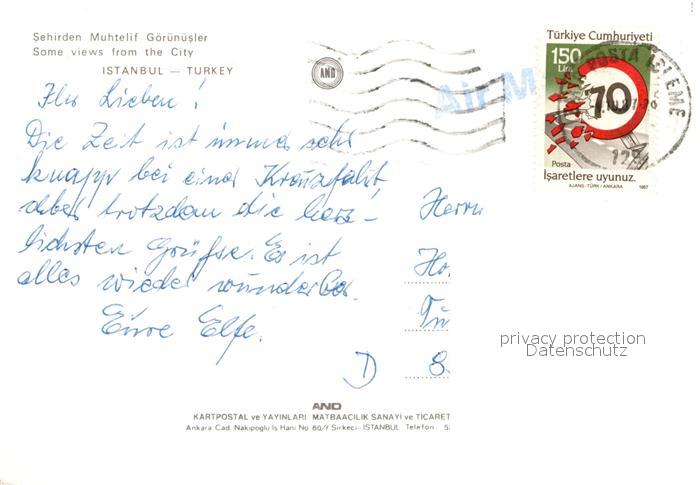 Şehirden Muhtelif Görünüşler
Some views from the City
ISTANBUL — TURKEY
AND
Air M
Türkiye Cumhuriyeti
150
Lira
POSTA İŞLEME
70
Posta
İşaretlere uyunuz.
AJANS-TÜRK / ANKARA 1987
Ihr Lieben!
Die Zeit ist immer sehr
knapp bei einer Kreuzfahrt,
aber trotzdem die herz-
lichsten Grüße. Es ist
alles wieder wunderbar.
Eure Elfe.
Herrn
Ho
D 8
privacy protection
Datenschutz
AND
KARTPOSTAL ve YAYINLARI MATBAACILIK SANAYİ ve TİCARET
Ankara Cad. Nakipoğlu İş Hanı No 60/f Sirkeci-İSTANBUL Telefon: 5